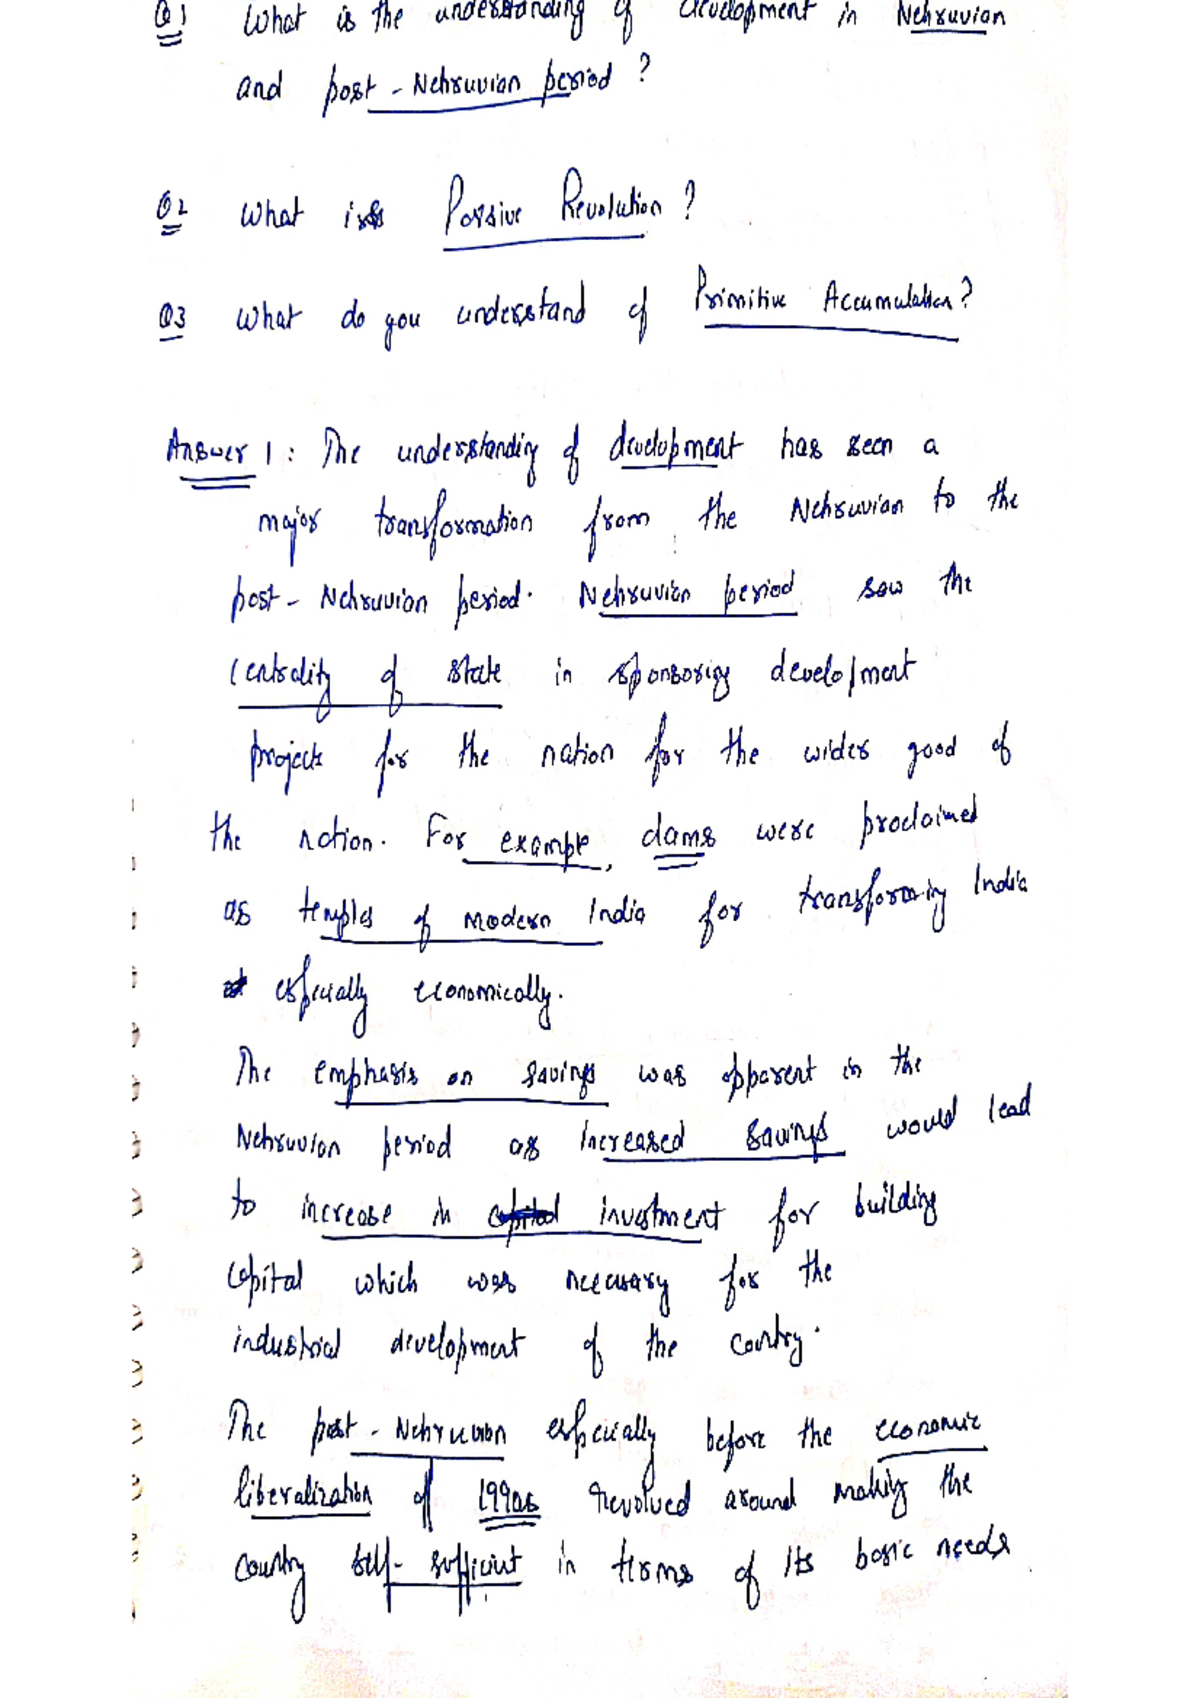 Q1 What is the understanding of development in Nehruvian
and post-Nehruvian period?
Q2 What is Passive Revolution?
Q3 What do you understand of Primitive Accumulation?
Answer 1: The understanding of development has seen a
major transformation from the Nehruvian to the
post-Nehruvian period. Nehruvian period saw the
centrality of state in sponsoring development
projects for the nation for the wider good of
the nation. For example, dams were proclaimed
as temples of modern India for transforming India
especially economically.
The emphasis on savings was apparent in the
Nehruvian period as increased savings would lead
to increase in investment for building
capital which was necessary for the
industrial development of the country.
The post-Nehruvian especially before the economic
liberalization of 1990s revolved around making the
country self-sufficient in terms of its basic needs